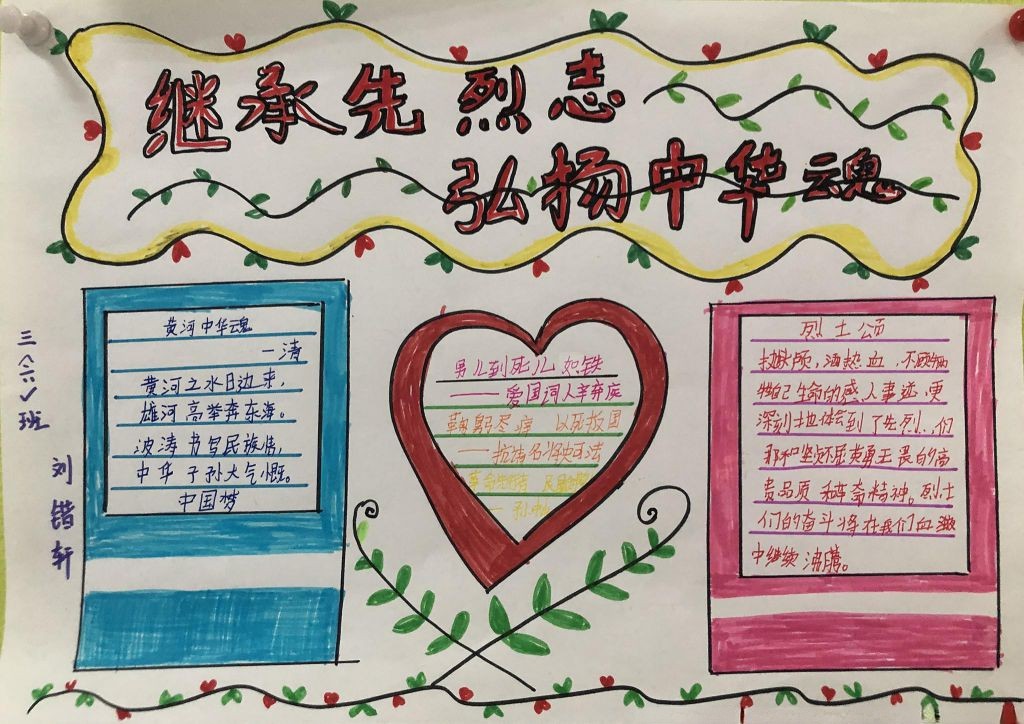 继承先烈志
弘扬中华魂
三〈六〉班
刘锴轩
黄河中华魂
一清
黄河之水日边来,
雄河高举奔东海。
波涛书写民族情,
中华子孙大气慨。
中国梦
男儿到死心如铁
——爱国词人辛弃疾
鞠躬尽瘁 以死报国
——抗清名将史可法
烈士颂
抛头颅,洒热血,不顾牺
牲自己生命的感人事迹,更
深刻地体会到了先烈们
那种坚贞不屈英勇王畏的高
贵品质和革命精神。烈士
们的奋斗将在我们血液
中继续沸腾。